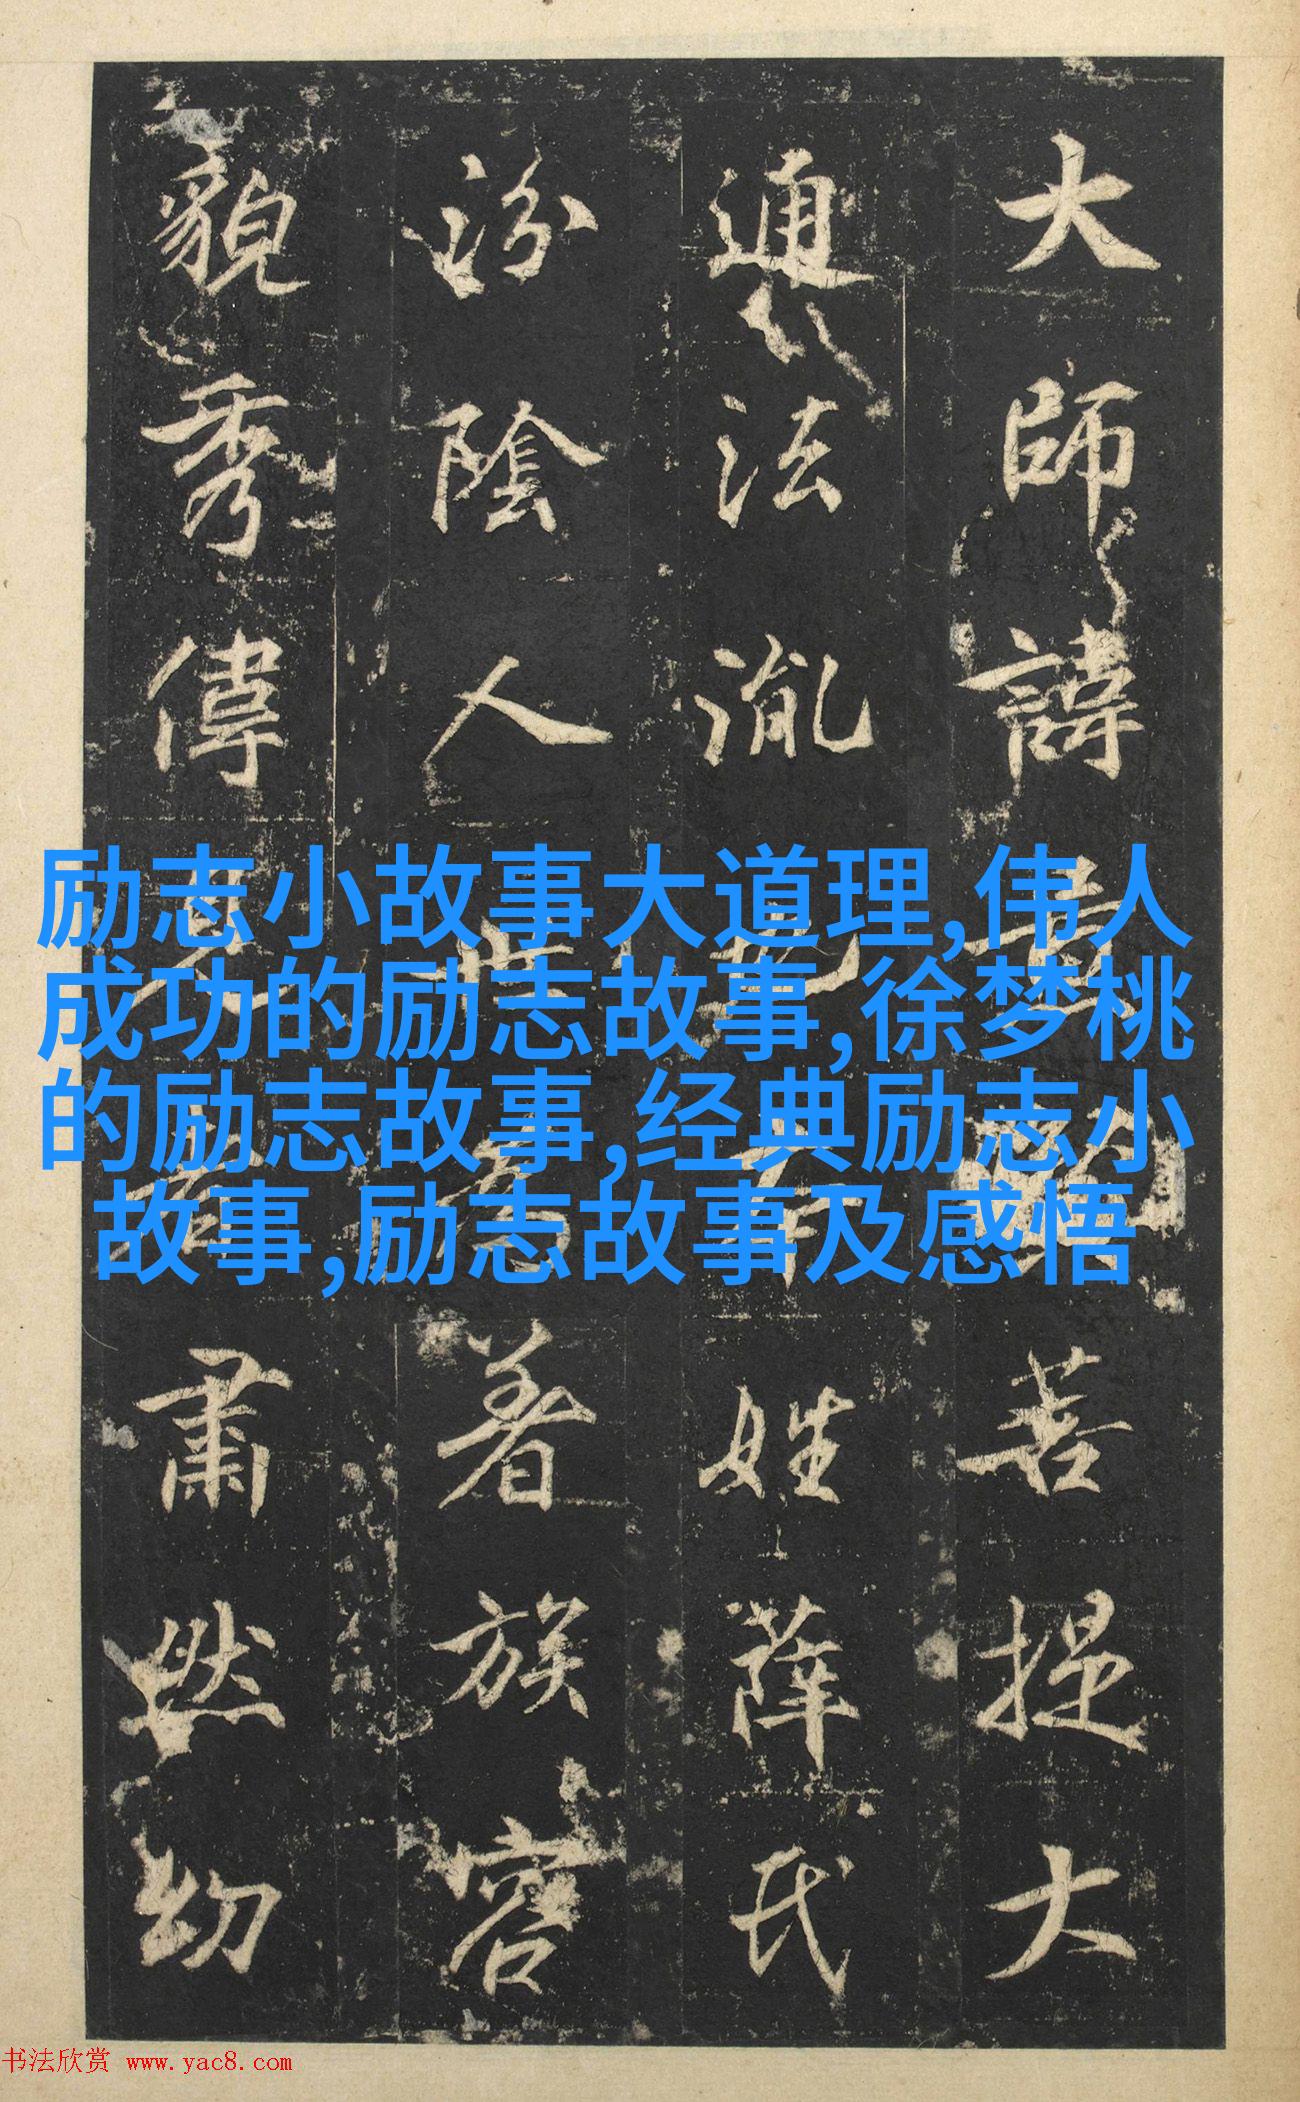 大師諱菩提大
通法胤姓薛氏
汾陰人世著族容
貌秀偉肅然幼
励志小故事大道理,伟人
成功的励志故事,徐梦桃
的励志故事,经典励志小
故事,励志故事及感悟
书法欣赏 www.yac8.com